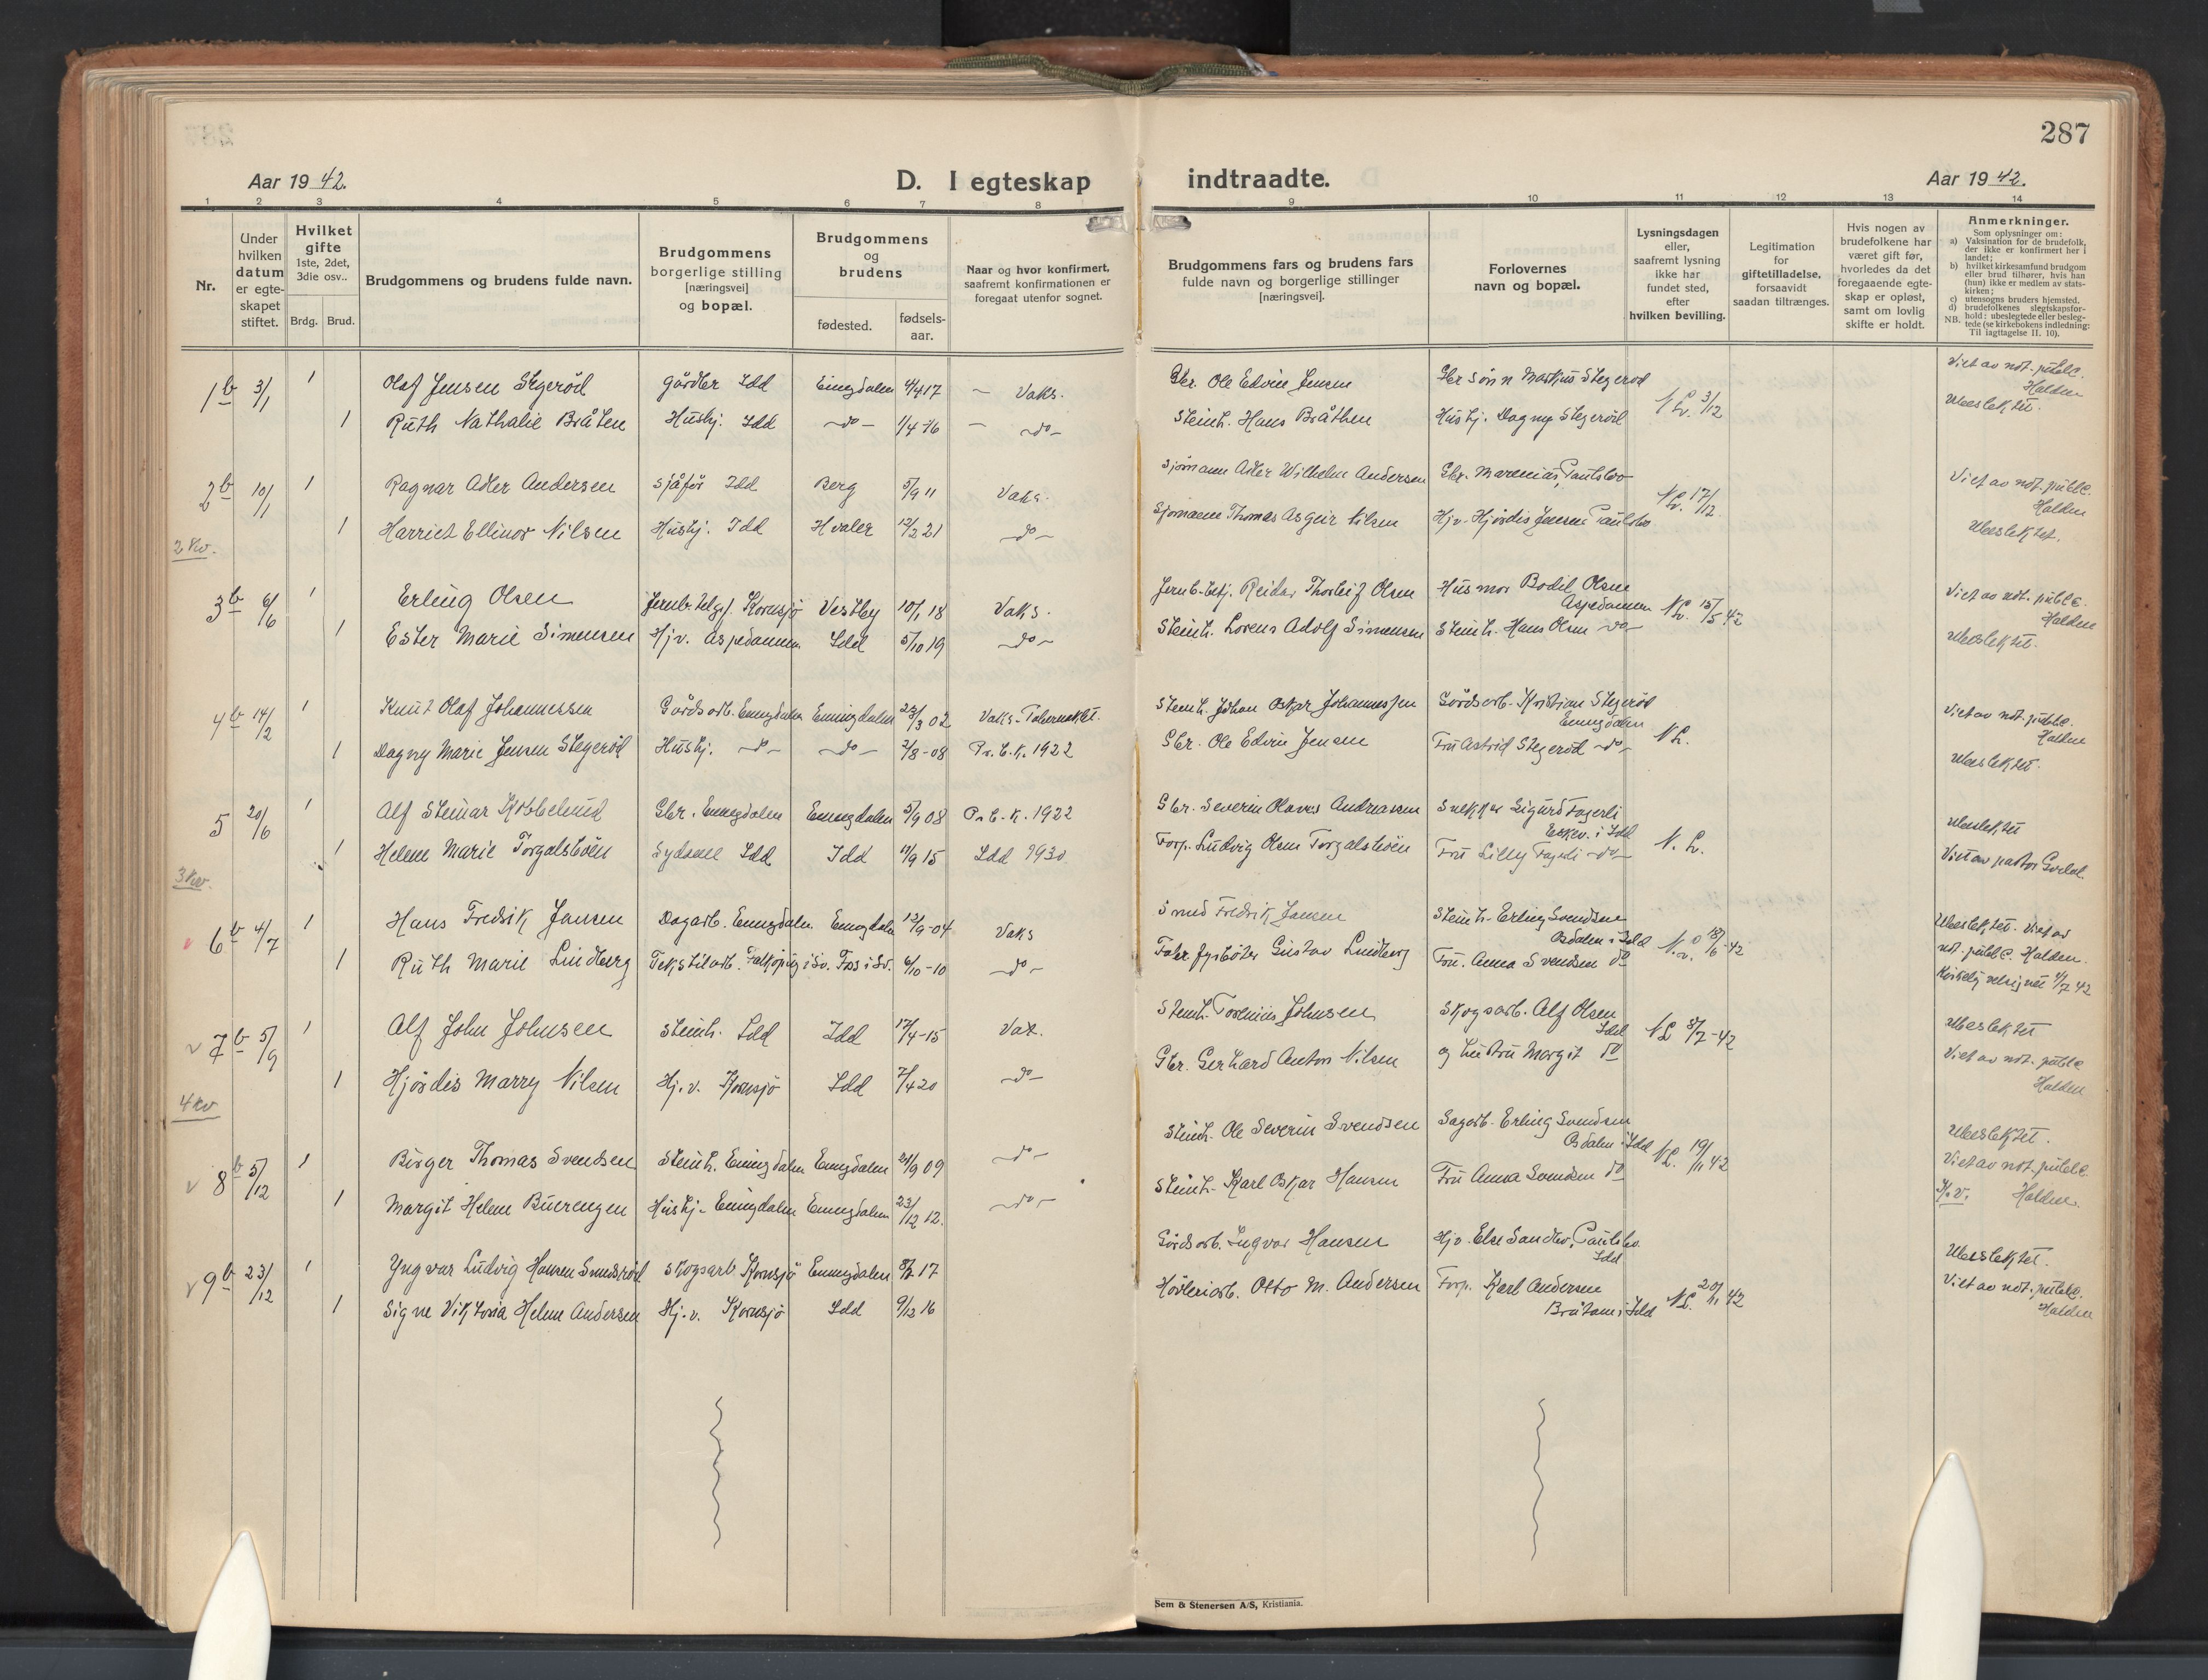 287
Aar 1942.
D. I egteskap indtraadte.
Aar 1942.
1 2 3 4 5 6 7 8 9 10 11 12 13 14
Nr.
Under hvilken datum er egteskapet stiftet.
Hvilket gifte 1ste, 2det, 3die osv..
Brdg. Brud.
Brudgommens og brudens fulde navn.
Brudgommens borgerlige stilling [næringsvei] og bopæl.
Brudgommens og brudens
fødested.
fødsels-aar.
Naar og hvor konfirmert, saafremt konfirmationen er foregaat utenfor sognet.
Brudgommens fars og brudens fars fulde navn og borgerlige stillinger [næringsvei].
Forlovernes navn og bopæl.
Lysningsdagen eller, saafremt lysning ikke har fundet sted, efter hvilken bevilling.
Legitimation for giftetilladelse, forsaavidt saadan tiltrænges.
Hvis nogen av brudefolkene har været gift før, hvorledes da det foregaaende egteskap er opløst, samt om lovlig skifte er holdt.
Anmerkninger.
Som oplysninger om:
a) Vaksination for de brudefolk, der ikke er konfirmert her i landet;
b) hvilket kirkesamfund brudgom eller brud tilhører, hvis han (hun) ikke er medlem av statskirken;
c) utensogns bruders hjemsted.
d) brudefolkenes slegtskapsforhold: ubeslegtede eller beslegtede (se kirkebokens indledning: Til iagttagelse II. 10).
NB.
1b 3/1 1 Olaf Jensen Stegerød Gårdbr Idd Enningdalen 4/4 17 – Vaks. Gbr. Ole Edvin Jensen Gbr sønn Markus Stegerød N.L. 3/12 Viet av not. publc. Halden
1 Ruth Nathalie Bråten Hushj. Idd -do- 1/4-16 – -do- Steinh. Hans Bråthen Hushj. Dagny Stegerød Ubeslektet.
2b 10/1 1 Ragnar Adler Andersen Sjåfør Idd Berg 5/9 11 Vaks. Sjømann Adler Wilhelm Andersen Gbr. Marenius Paulsbo N.L. 17/12 Viet av not. publc. Halden
1 Harriet Ellinor Nilsen Hushj. Idd Hvaler 12/2 21 -do- Sjømann Thomas Asgeir Nilsen Hjv. Hjørdis Jensen Paulsbo Ubeslektet.
2 Kv.
3b 6/6 1 Erling Olsen Jernb. telgrf. Kornsjø Vestby 10/1 18 Vaks. Jernb. betj. Reidar Thorleif Olsen Husmor Bodil Olsen Aspedammen N.L. 15/5 42 Viet av not. publc. Halden
1 Ester Marie Simensen Hjv. Aspedammen Idd 5/10 19 -do- Steinh. Lorens Adolf Simensen Steinh. Hans Olsen -do- Ubeslektet.
4b 14/2 1 Knut Olaf Johannessen Gårdsarb. Enningdalen Enningdalen 23/3 02 Vaks. Tabernaklet. Steinh. Johan Oskar Johannessen Gårdsarb. Kristian Stegerød Enningdalen N.L. Viet av not. publc. Halden
1 Dagny Marie Jensen Stegerød Hushj. -do- -do- 2/8-08 Pr. E. K. 1922 Gbr. Ole Edvin Jensen Fru Astrid Stegerød -do- Ubeslektet.
5 20/6 1 Alf Steinar Kobbelund Gbr. Enningdalen Enningdalen 5/9 08 Pr. E. K. 1922 Gbr. Severin Olaves Andreassen Snekker Sigurd Fagerli i Idd N. L. Ubeslektet
1 Helene Marie Torgalsbøen Sydame Idd Idd 11/9 15 Idd 1930 Forp. Ludvig Olsen Torgalsbøen Fru Lilly Fagerli -do- Viet av pastor
3 Kv.
6b 4/7 1 Hans Fredrik Jansen Dagarb. Enningdalen Enningdalen 12/9-04 Vaks Smed Fredrik Jansen Steinh. Erling Svendsen Osdalen i Idd 18/6-42 Ubeslektet. Viet av
1 Ruth Marie Lindberg Tekstilarb. Falköping i Sv. i Sv. 6/10-10 -do- Gustav Lindberg Fru. Anna Svendsen do not. publc. Halden. Kirkelig velsignet 4/7 42
7b 5/9 1 Alf John Johnsen Steinh. Idd Idd 17/4-15 Vax. Steinh. Torenius Johnsen Skogsarb. Alf Olsen Idd N.L. 8/7-42 Ubeslektet
1 Hjørdis Marry Nilsen Hj.v. Kornsjø Idd 7/4 20 -do- Gbr. Gerhard Anton Nilsen og hustru Margit do Viet av not. publc Halden
4 Kv
8b 5/12 1 Birger Thomas Svendsen Steinh. Enningdalen Enningdalen 21/9 09 -do- Steinh. Ole Severin Svendsen Sagarb. Erling Svendsen Osdalen i Idd N.L. 19/11 42 Ubeslektet.
1 Margit Helene Buerengen Hushj. Enningdalen Enningdalen 23/12 12. -do- Steinh. Karl Oskar Hansen Fru Anna Svendsen do Viet av not. publc. K.v. Halden.
9b 23/12 1 Yngvar Ludvig Hansen Skogsarb Kornsjø Enningdalen 17 Gårdsarb. Ingvar Hansen Hjv. Else Sandbo, Paulsbo Idd N.L. 20/11 42 Ubeslektet.
1 Signe Viktoria Helene Andersen Hj.v. Kornsjø Idd 9/12 16 Høvleriarb. Otto M. Andersen Forp. Karl Andersen Bråtane i Idd Viet av not. publc. Halden
Sem & Stenersen A/S, Kristiania.